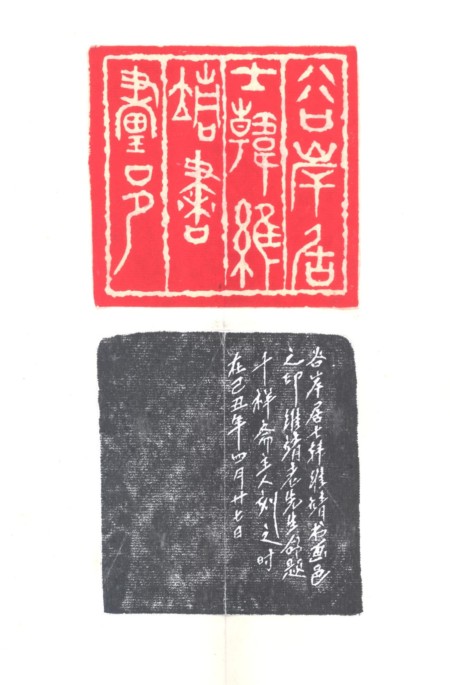 谷岸居
士韓維
靖書
畫邑
谷岸居士韩维靖书画邑
之印维靖老先生命题
十祥斋主人刻之时
在己丑年四月廿七日